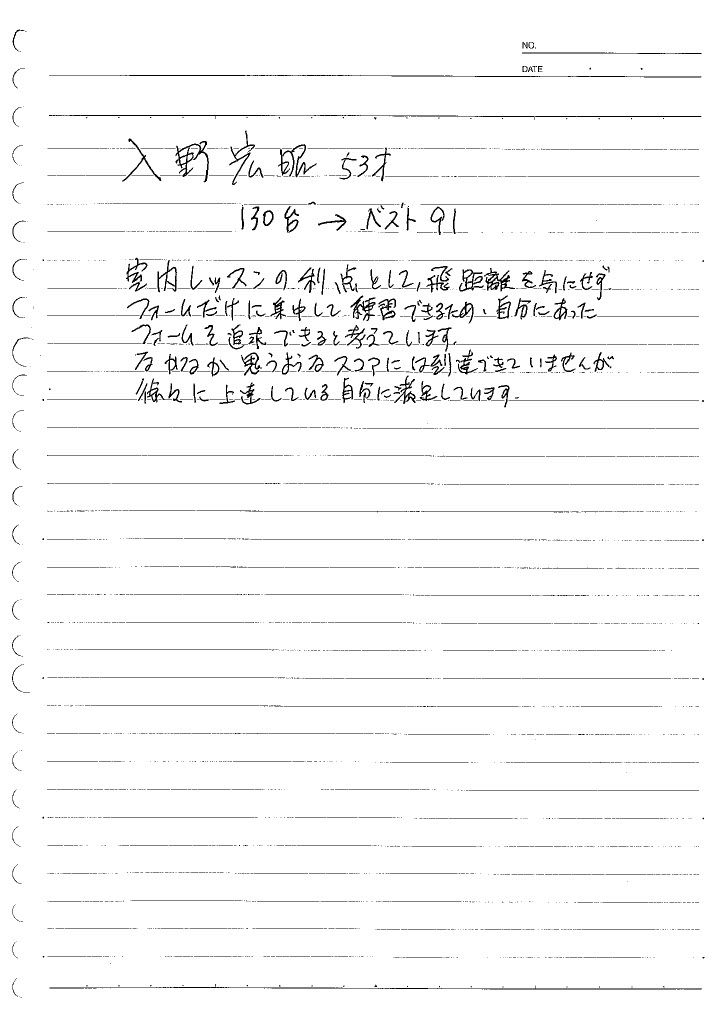 NO.
DATE ・ ・
入野宏昭 53才
130台 → ベスト 91
室内レッスンの利点として、飛距離を気にせず
フォームだけに集中して練習できるため、自分にあった
フォームを追求できると考えています。
なかなか思うようなスコアには到達できていませんが
徐々に上達している自分に満足しています。